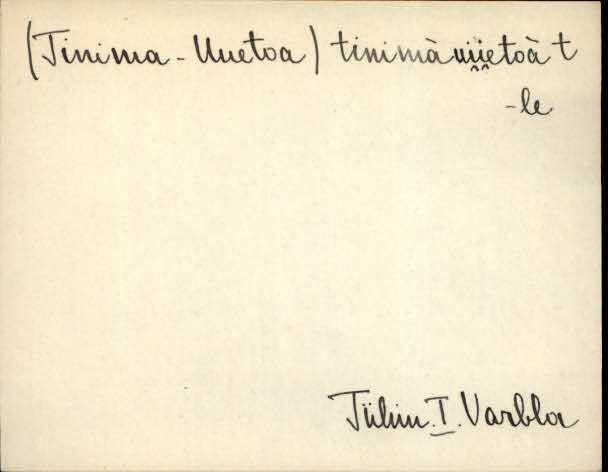 (Tinima - Uuetoa) tinimàu̯u̯etoà t
-le
Tiihin. I. Varbla